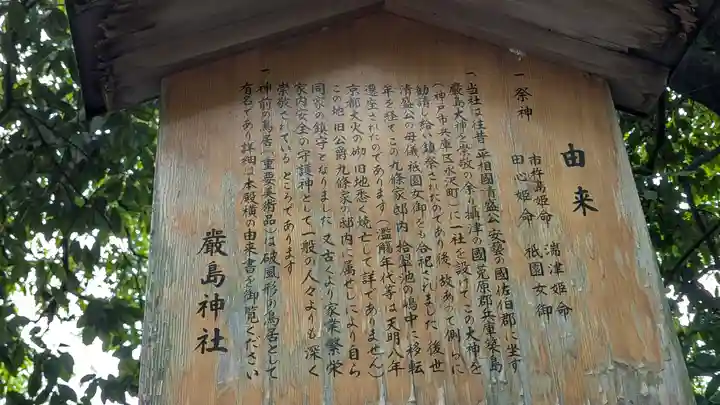 由来
一 祭神
市杵島姫命 湍津姫命
田心姫命 祇園女御
一 当社は往昔 平相國清盛公 安藝の國佐伯郡に坐す
厳島大神を崇敬の余り攝津の國菟原郡兵庫築島
(神戸市兵庫区永沢町)に一社を設けてこの大神を
勧請し給い鎮祭されたのであり 後 故あって側らに
清盛公の母儀 祇園女御をも合祀されました 後世
年を経てこの九條家邸内 拾翠池の嶋中に移転
遷座されたのであります(濫觴年代等は天明八年
京都大火の砌 旧地悉く焼亡して詳でありません)
この地 旧公爵九條家の邸内に属せしにより自ら
同家の鎮守となりました 又古くより家業繁栄
家内安全の守護神として一般の人々よりも深く
崇敬されているところであります
一 神前の鳥居(重要美術品)は破風形の鳥居として
有名であり詳細は本殿横の由来書を御覧ください
嚴島神社